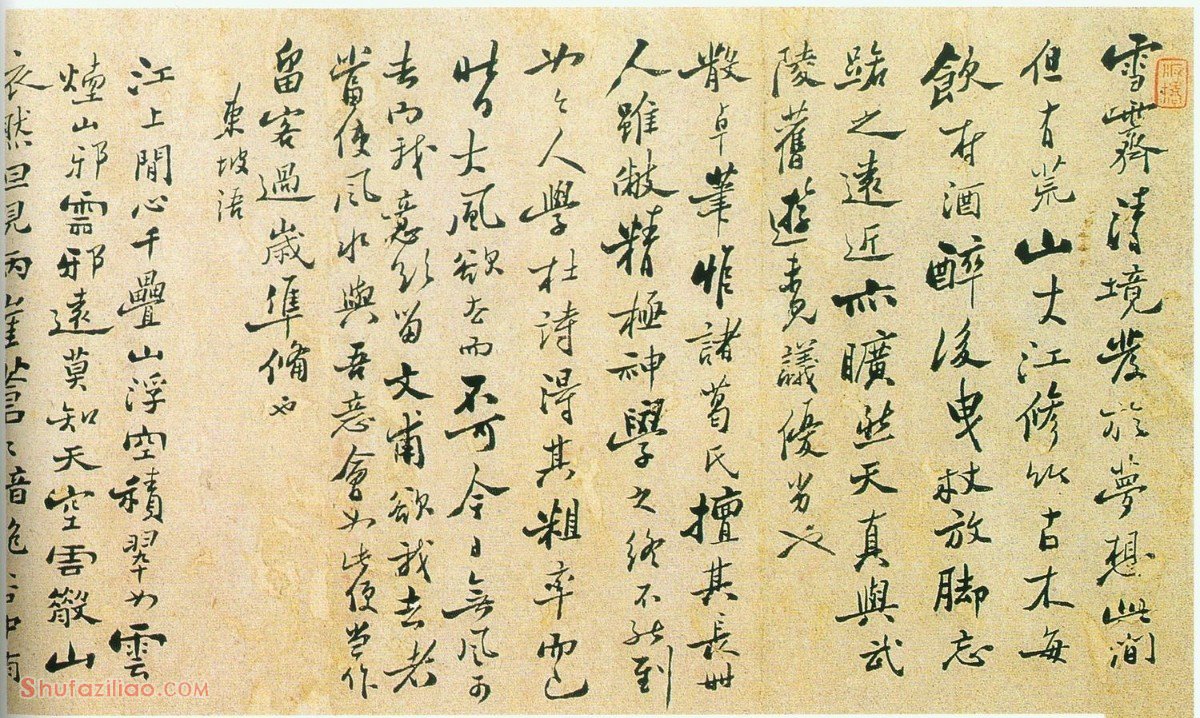 雪齋清境發於夢想此間
但有荒山大江修竹古木每
飲村酒醉後曳杖放脚忘
踞之遠近亦曠然天真與武
陵舊遊未見議優劣也
散卓筆惟諸葛氏擅其長世
人雖敝精極神學之終不能到
如人學杜詩得其粗率而已
昔日大風欲去而不可今日無風可
去而我意欲留文甫欲我去者
當使風水與吾意會如此便當作
留客過歲準備也
東坡語
江上閒心千疊山浮空積翠如雲
煙山邪雲邪遠莫知天空雲散山
依然但見兩崖蒼蒼暗絕谷中有
板橋
Shufaziliao.com